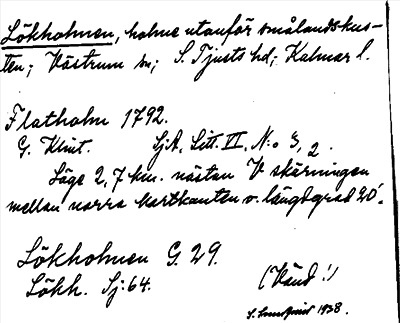 Lökholmen, holme utanför smålandskus-
ten; Västrum sn; S. Tjusts hd; Kalmar l.
Flatholm 1792.
G. Klint. SjA, Sett. VI, N:o 3, 2.
Läge 2,7 km. nästan V skärningen
mellan norra kartkanten o. längdgrad 20'.
Lökholmen G. 29.
Lökh. Sj: 64.
(Vänd!)
1938.